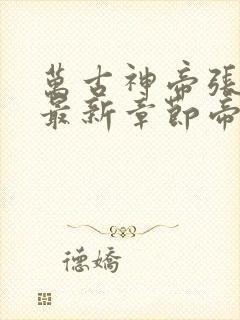 萬古神帝張
最新章節帝
德嬌